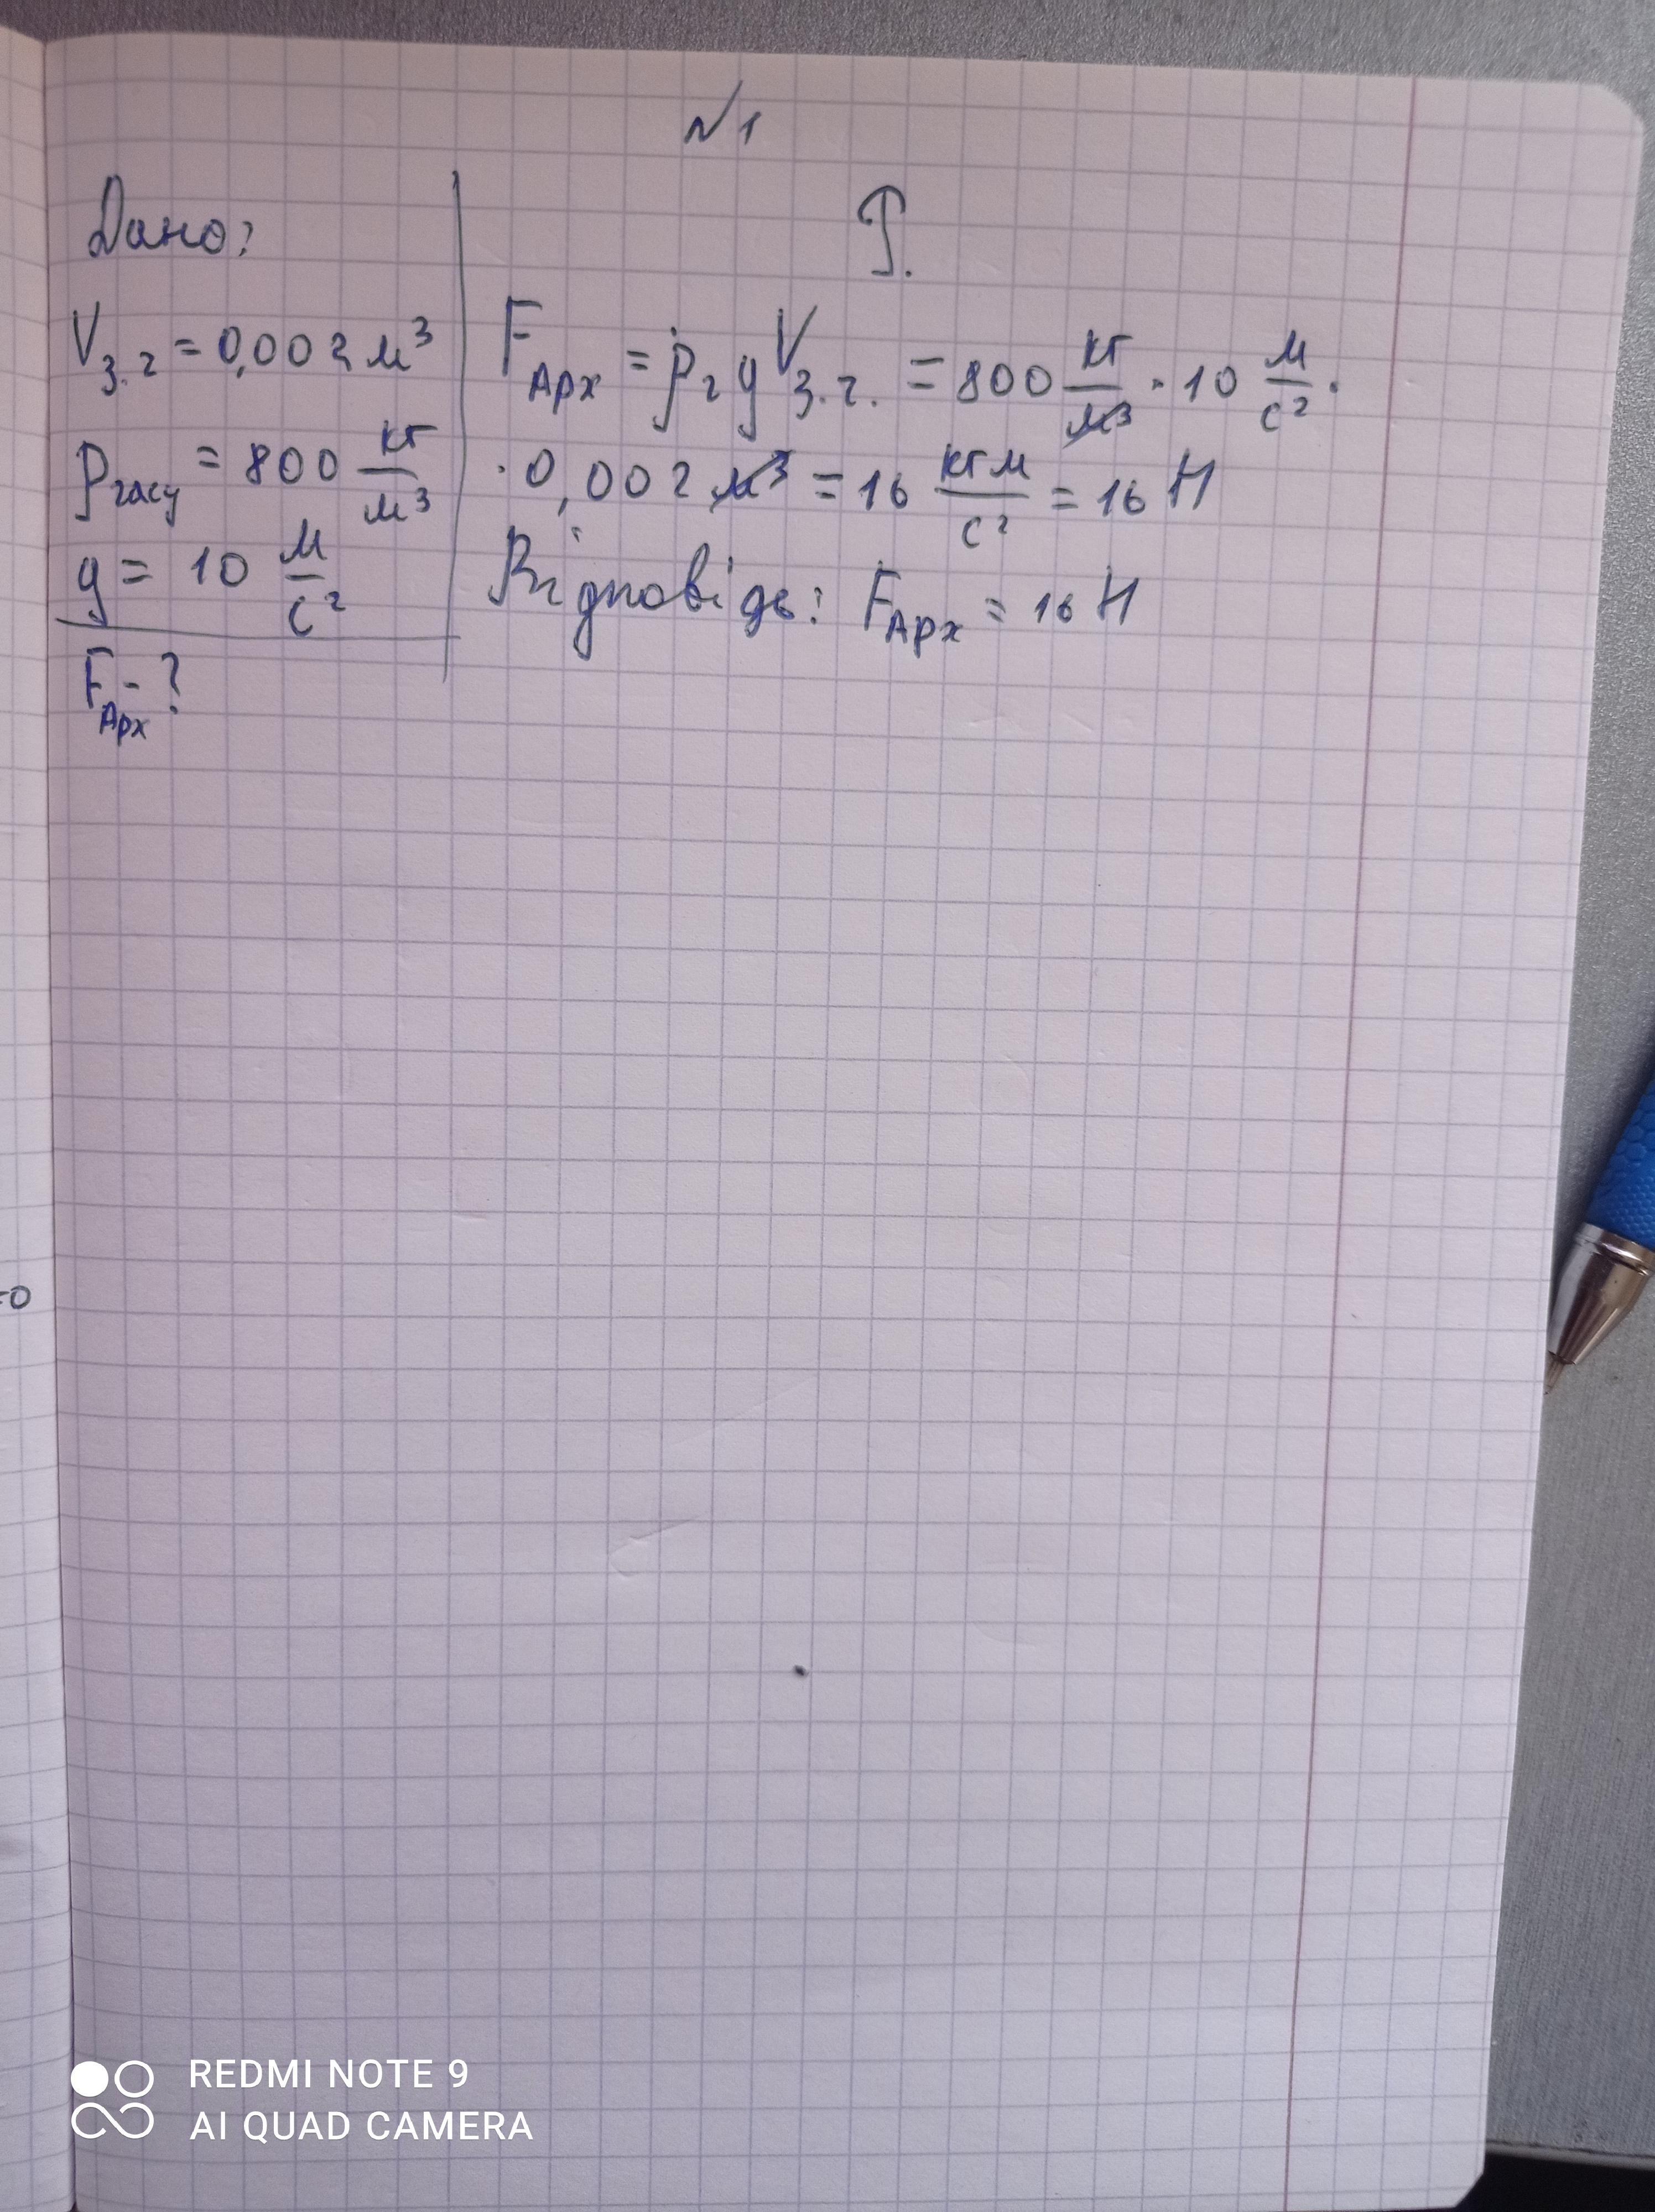 №1
Дано:
V з.г = 0,002 м³
ρ гасу = 800 кг/м³
g = 10 м/с²
F Арх - ?
Р.
F Арх = ρ г g V з.г. = 800 кг/м³ · 10 м/с² ·
· 0,002 м³ = 16 кг м/с² = 16 Н
Відповідь: F Арх = 16 Н
=0
REDMI NOTE 9
AI QUAD CAMERA